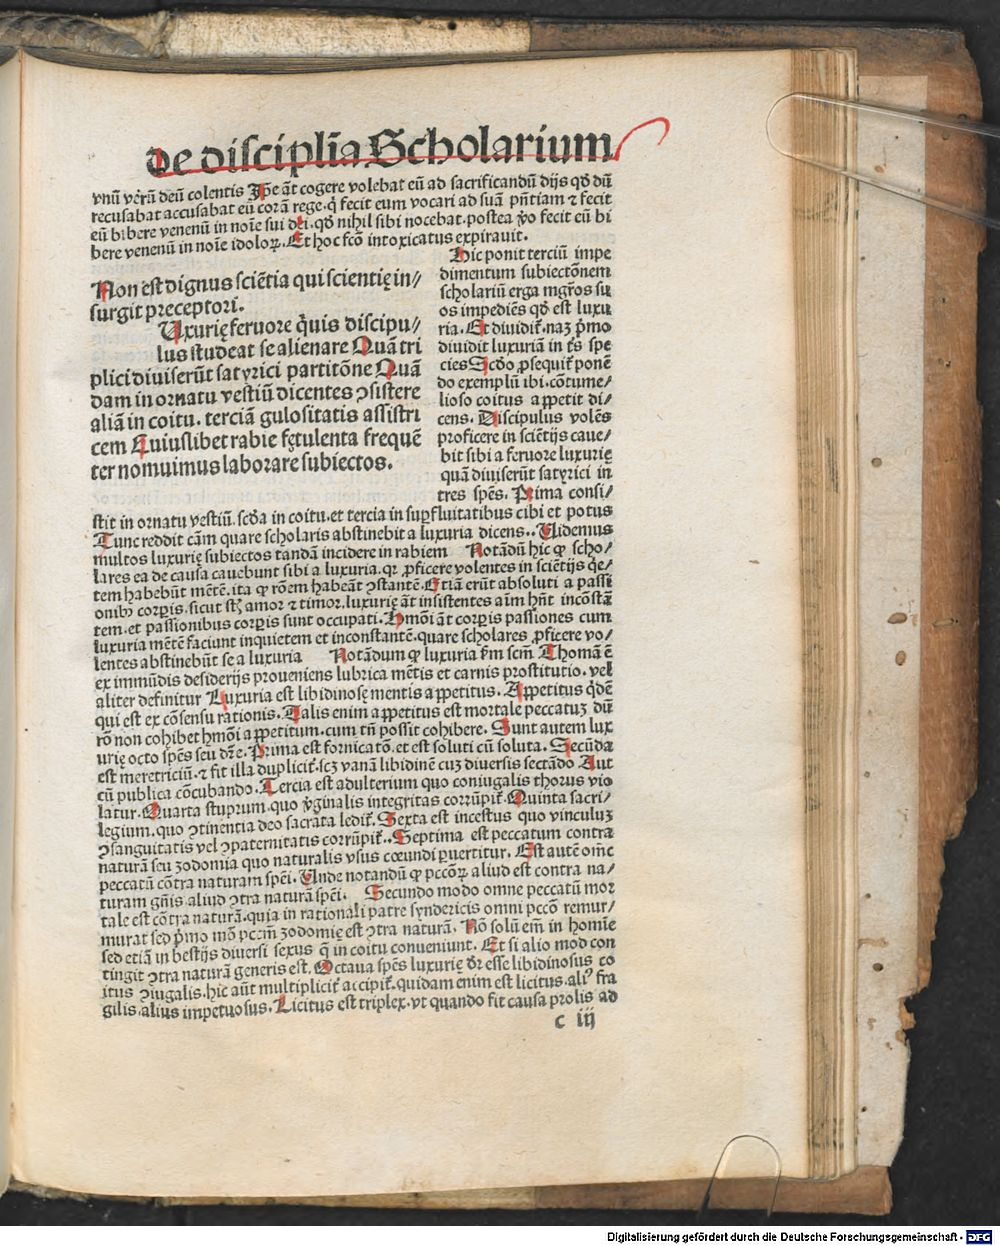 de disciplĩa Scholarium
vnũ verũ deũ colentis Ipẽ ãt cogere volebat eũ ad sacrificandũ dijs qđ dũ
recusabat accusabat eũ corã rege. q̇ fecit eum vocari ad suã pñtiam ⁊ fecit
eũ bibere venenũ in noĩe sui dei. qđ nihil sibi nocebat. postea v̊o fecit eũ bi
bere venenũ in noĩe idoloꝝ. Et hoc fcõ intoxicatus expirauit.
Non est dignus sciẽtia qui scientię in⸗
surgit preceptori.
Uxurię feruore q̇uis discipu⸗
lus studeat se alienare Quã tri
plici diuiserũt satyrici partitõne Quã
dam in ornatu vestiũ dicentes ꝯsistere
aliã in coitu. terciã gulositatis assistri
cem Cuiuslibet rabie fętulenta frequẽ
ter nouimus laborare subiectos.
Hic ponit terciũ impe
dimentum subiectõnem
scholariũ erga mgr̃os su
os impediẽs qđ est luxu
ria. Et diuidit᷑. naꝫ p̃mo
diuidit luxuriã in tr̃s spe
cies Scđo ꝓsequit᷑ ponẽ
do exemplũ ibi. cõtume⸗
lioso coitus appetit di⸗
cens. Discipulus volẽs
proficere in sciẽtijs caue⸗
bit sibi a feruore luxurię
quã diuiserũt satyrici in
tres spẽs. Prima consi⸗
stit in ornatu vestiũ. scđa in coitu. et tercia in suꝑfluitatibus cibi et potus
Tunc reddit cãm quare scholaris abstinebit a luxuria dicens.. Uidemus
multos luxurię subiectos tandã incidere in rabiem Notãdũ hic ꝙ scho⸗
lares ea de causa cauebunt sibi a luxuria. qꝛ ꝓficere volentes in sciẽtijs q̇e⸗
tem habebũt mẽtẽ. ita ꝙ rõem habeãt ꝯstantẽ. Etiã erũt absoluti a passi
onibꝰ corꝑis. sicut st̃ amor ⁊ timor. luxurię ãt insistentes aĩm hñt incõstã
tem. et passionibus corꝑis sunt occupati. Hmõi ãt corꝑis passiones cum
luxuria mẽtẽ faciunt inquietem et inconstantẽ. quare scholares ꝓficere vo⸗
lentes abstinebũt se a luxuria Notãdum ꝙ luxuria f̃m scm̃ Thomã ẽ
ex immũdis desiderijs proueniens lubrica mẽtis et carnis prostitutio. vel
aliter definitur Luxuria est libidinosę mentis appetitus. Appetitus q̇dẽ
qui est ex cõsensu rationis. Talis enim appetitus est mortale peccatuꝫ dũ
rõ non cohibet hmõi appetitum. cum tñ possit cohibere. Sunt autem lux
urię octo spẽs seu dr̃e. Prima est fornicatõ. et est soluti cũ soluta. Secũda
est meretriciũ. ⁊ fit illa duplicit᷑. scꝫ vanã libidinẽ cuꝫ diuersis sectãdo Aut
cũ publica cõcubando. Tercia est adulterium quo coniugalis thorus vio
latur. Quarta stuprum. quo v̇ginalis integritas corrũpit᷑. Quinta sacri⸗
legium. quo ꝯtinentia deo sacrata ledit᷑. Sexta est incestus quo vinculuꝫ
ꝯsanguitatis vel ꝯpaternitatis corrũpit᷑.. Septima est peccatum contra
naturã seu zodomia quo naturalis vsus cœundi ꝑuertitur. Est autẽ om̃e
peccatũ cõtra naturam spẽi. Unde notandũ ꝙ pccõꝝ aliud est contra na⸗
turam gñis. aliud ꝯtra naturã spẽi. Secundo modo omne peccatũ mor
tale est cõtra naturã. quia in rationali patre syndericis omni pccõ remur⸗
murat sed p̃mo mõ pccm̃ zodomię est ꝯtra naturã. Nõ solũ em̃ in homĩe
sed etiã in bestijs diuersi sexus q̃ in coitu conueniunt. Et si alio mod con
tingit ꝯtra naturã generis est. Octaua spẽs luxurię dr̃ esse libidinosus co
itus ꝯiugalis. hic aũt multiplicit᷑ accipit᷑. quidam enim est licitus. aliꝰ fra
gilis. alius impetuosus. Licitus est triplex. vt quando fit causa prolis ad
c iij
Digitalisierung gefördert durch die Deutsche Forschungsgemeinschaft - DFG